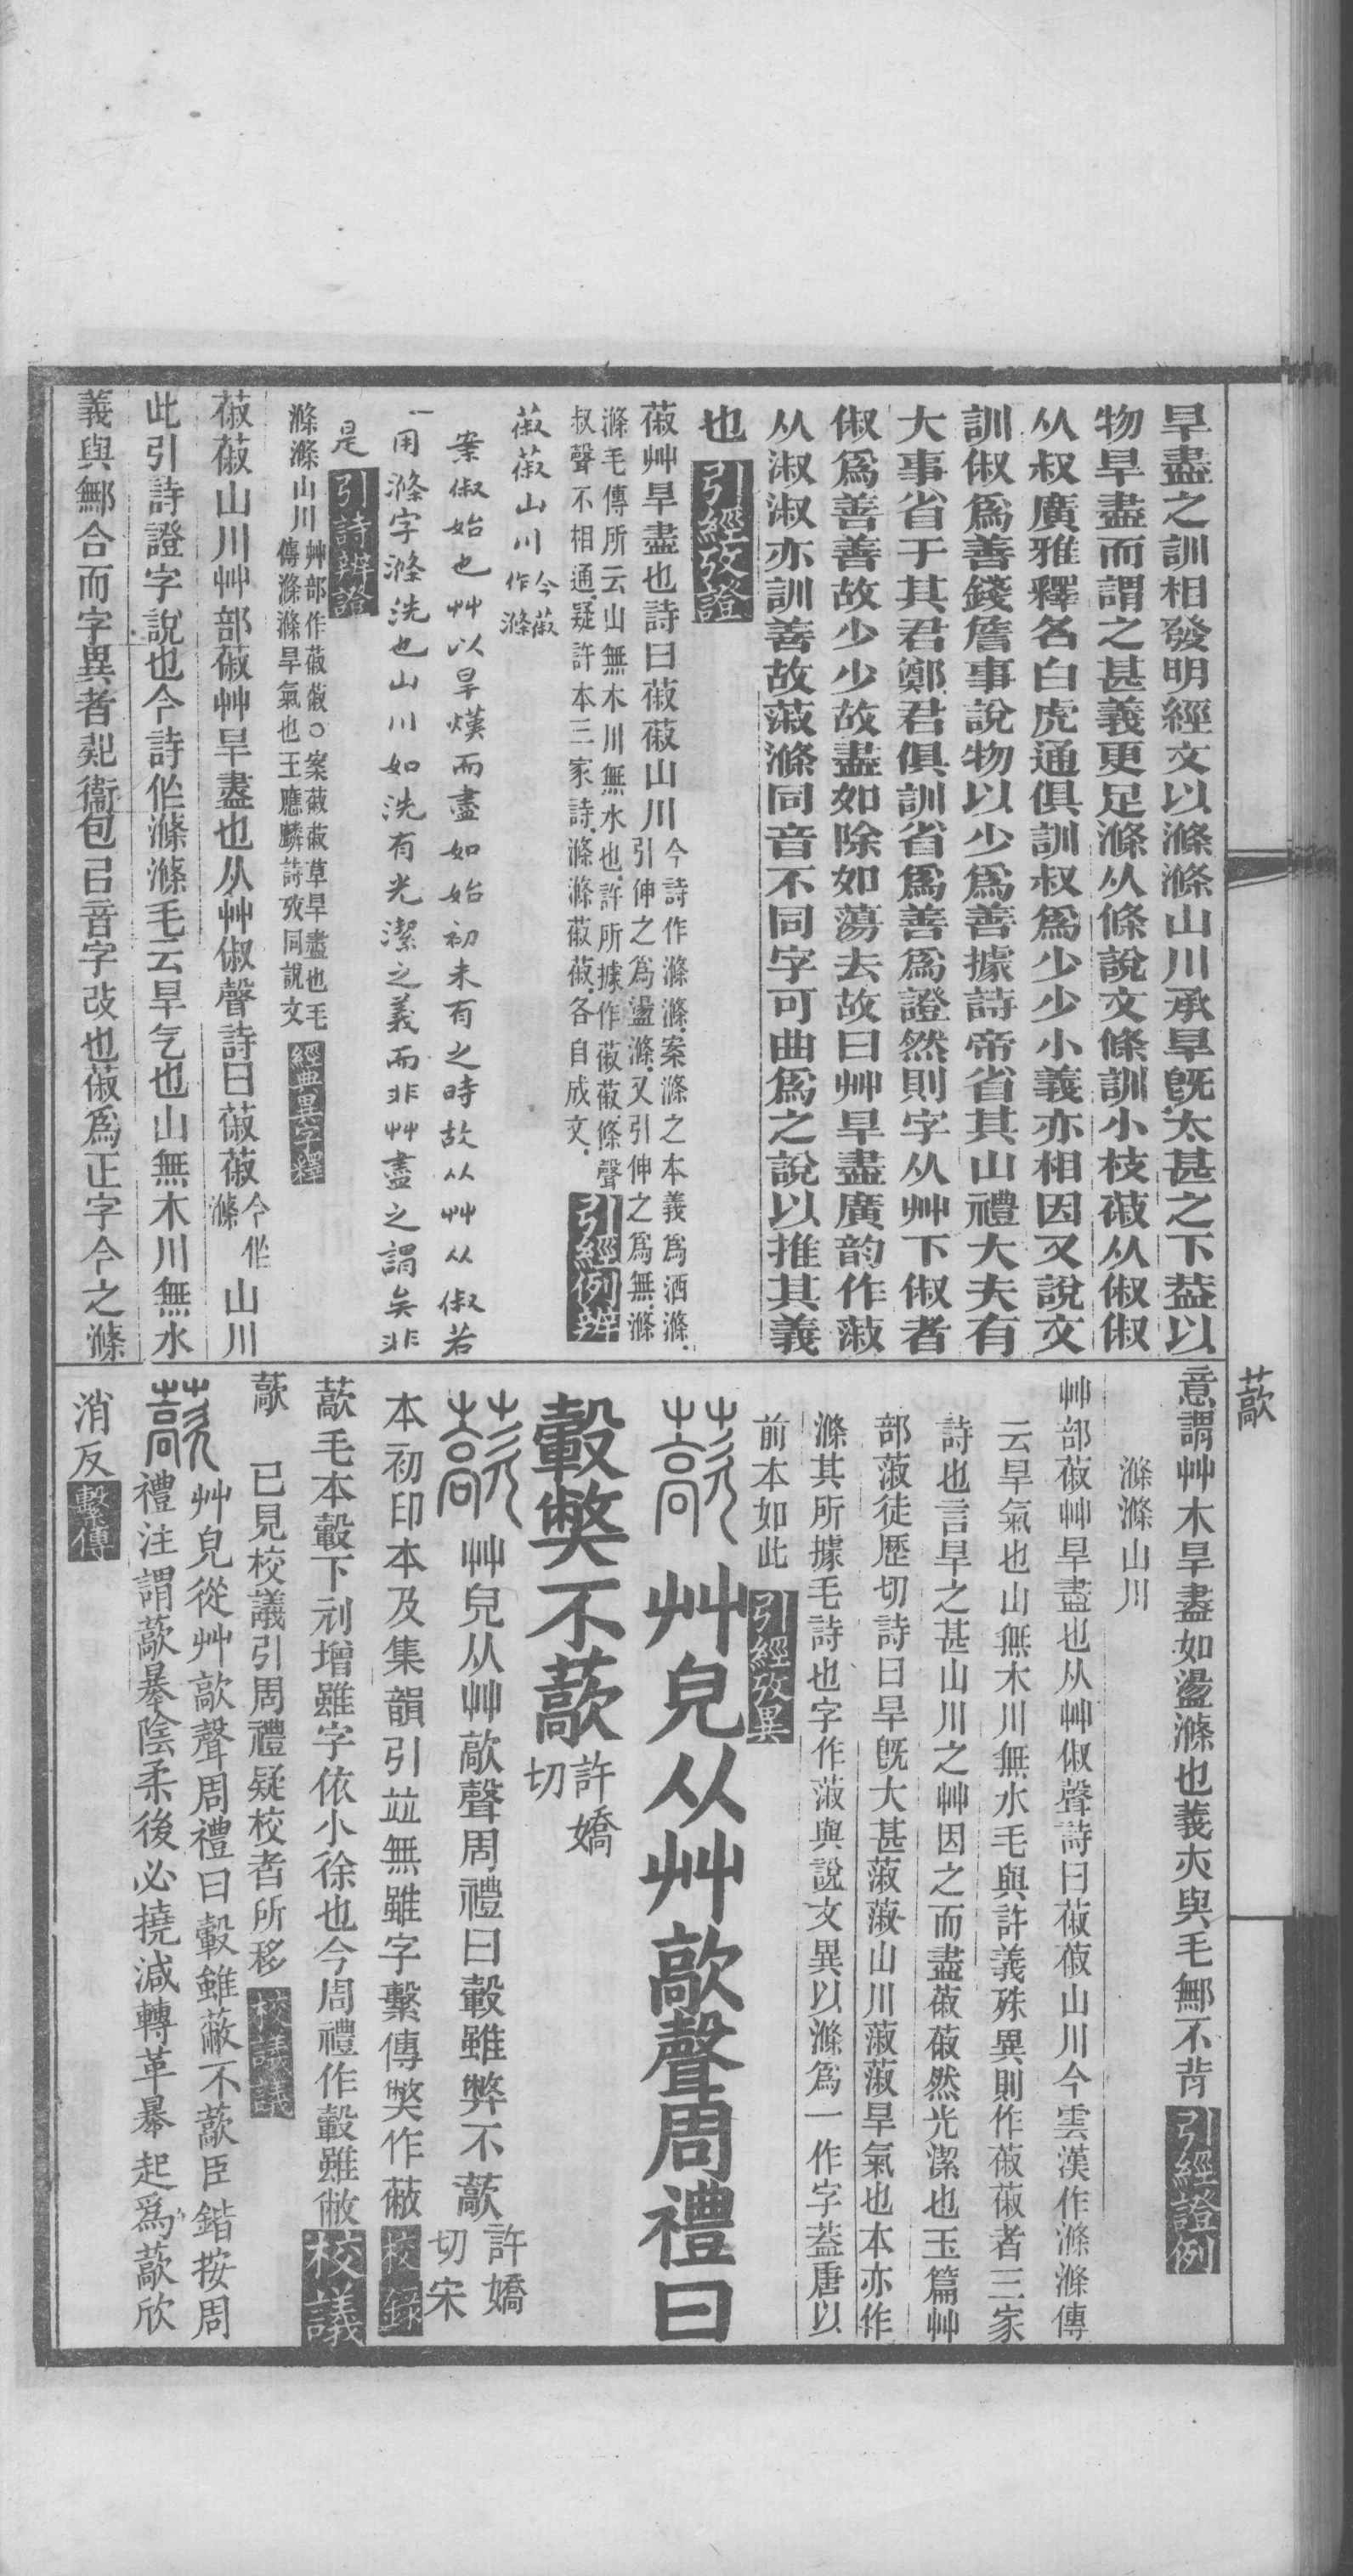 旱盡之訓相發明經文以滌滌山川承旱旣太甚之下葢以
物旱盡而謂之甚義更足滌从條說文條訓小枝蔋从俶俶
从叔廣雅釋名白虎通俱訓叔爲少少小義亦相因又說文
訓俶爲善錢詹事說物以少爲善據詩帝省其山禮大夫有
大事省于其君鄭君俱訓省爲善爲證然則字从艸下俶者
俶爲善善故少少故盡如除如蕩去故曰艸旱盡廣韵作蔋
从淑淑亦訓善故蔋滌同音不同字可曲爲之說以推其義
也 引經攷證
蔋艸旱盡也詩曰蔋蔋山川 今詩作滌滌.案滌之本義爲洒滌.
引伸之爲盪滌.又引伸之爲無.滌
滌毛傳所云山無木川無水也.許所據作蔋蔋.條聲
叔聲不相通.疑許本三家詩.滌滌蔋蔋.各自成文. 引經例辨
蔋蔋山川 今蔋
作滌
案俶始也艸以旱熯而盡如始初未有之時故从艸从俶若
一用滌字滌洗也山川如洗有光潔之義而非艸盡之謂矣非
是 引詩辨證
滌滌山川 艸部作蔋蔋○案蔋蔋草旱盡也毛
傳滌滌旱氣也王應麟詩攷同說文 經典異字釋
蔋蔋山川艸部蔋艸旱盡也从艸俶聲詩曰蔋蔋 今作
滌 山川
此引詩證字說也今詩作滌滌毛云旱气也山無木川無水
義與鄦合而字異者㓞衞包㠯音字改也蔋爲正字今之滌
薧
意謂艸木旱盡如盪滌也義亦與毛鄦不背 引經證例
滌滌山川
艸部蔋艸旱盡也从艸俶聲詩曰蔋蔋山川今雲漢作滌滌傳
云旱氣也山無木川無水毛與許義殊異則作蔋蔋者三家
詩也言旱之甚山川之艸因之而盡蔋蔋然光潔也玉篇艸
部蔋徒歷切詩曰旱旣大甚蔋蔋山川蔋蔋旱氣也本亦作
滌其所據毛詩也字作蔋與說文異以滌爲一作字葢唐以
前本如此 引經攷異
藃 艸皃从艸歊聲周禮曰
轂獘不藃 許嬌
切
藃 艸皃从艸歊聲周禮曰轂雖弊不藃 許嬌
切宋
本初印本及集韻引竝無雖字繫傳獘作蔽 校錄
藃毛本轂下剜增雖字依小徐也今周禮作轂雖敝 校議
藃 已見校議引周禮疑校者所移 校議議
藃 艸皃從艸歊聲周禮曰轂雖蔽不藃臣鍇按周
禮注謂藃暴陰柔後必撓減轉革暴起爲藃欣
消反 繫傳